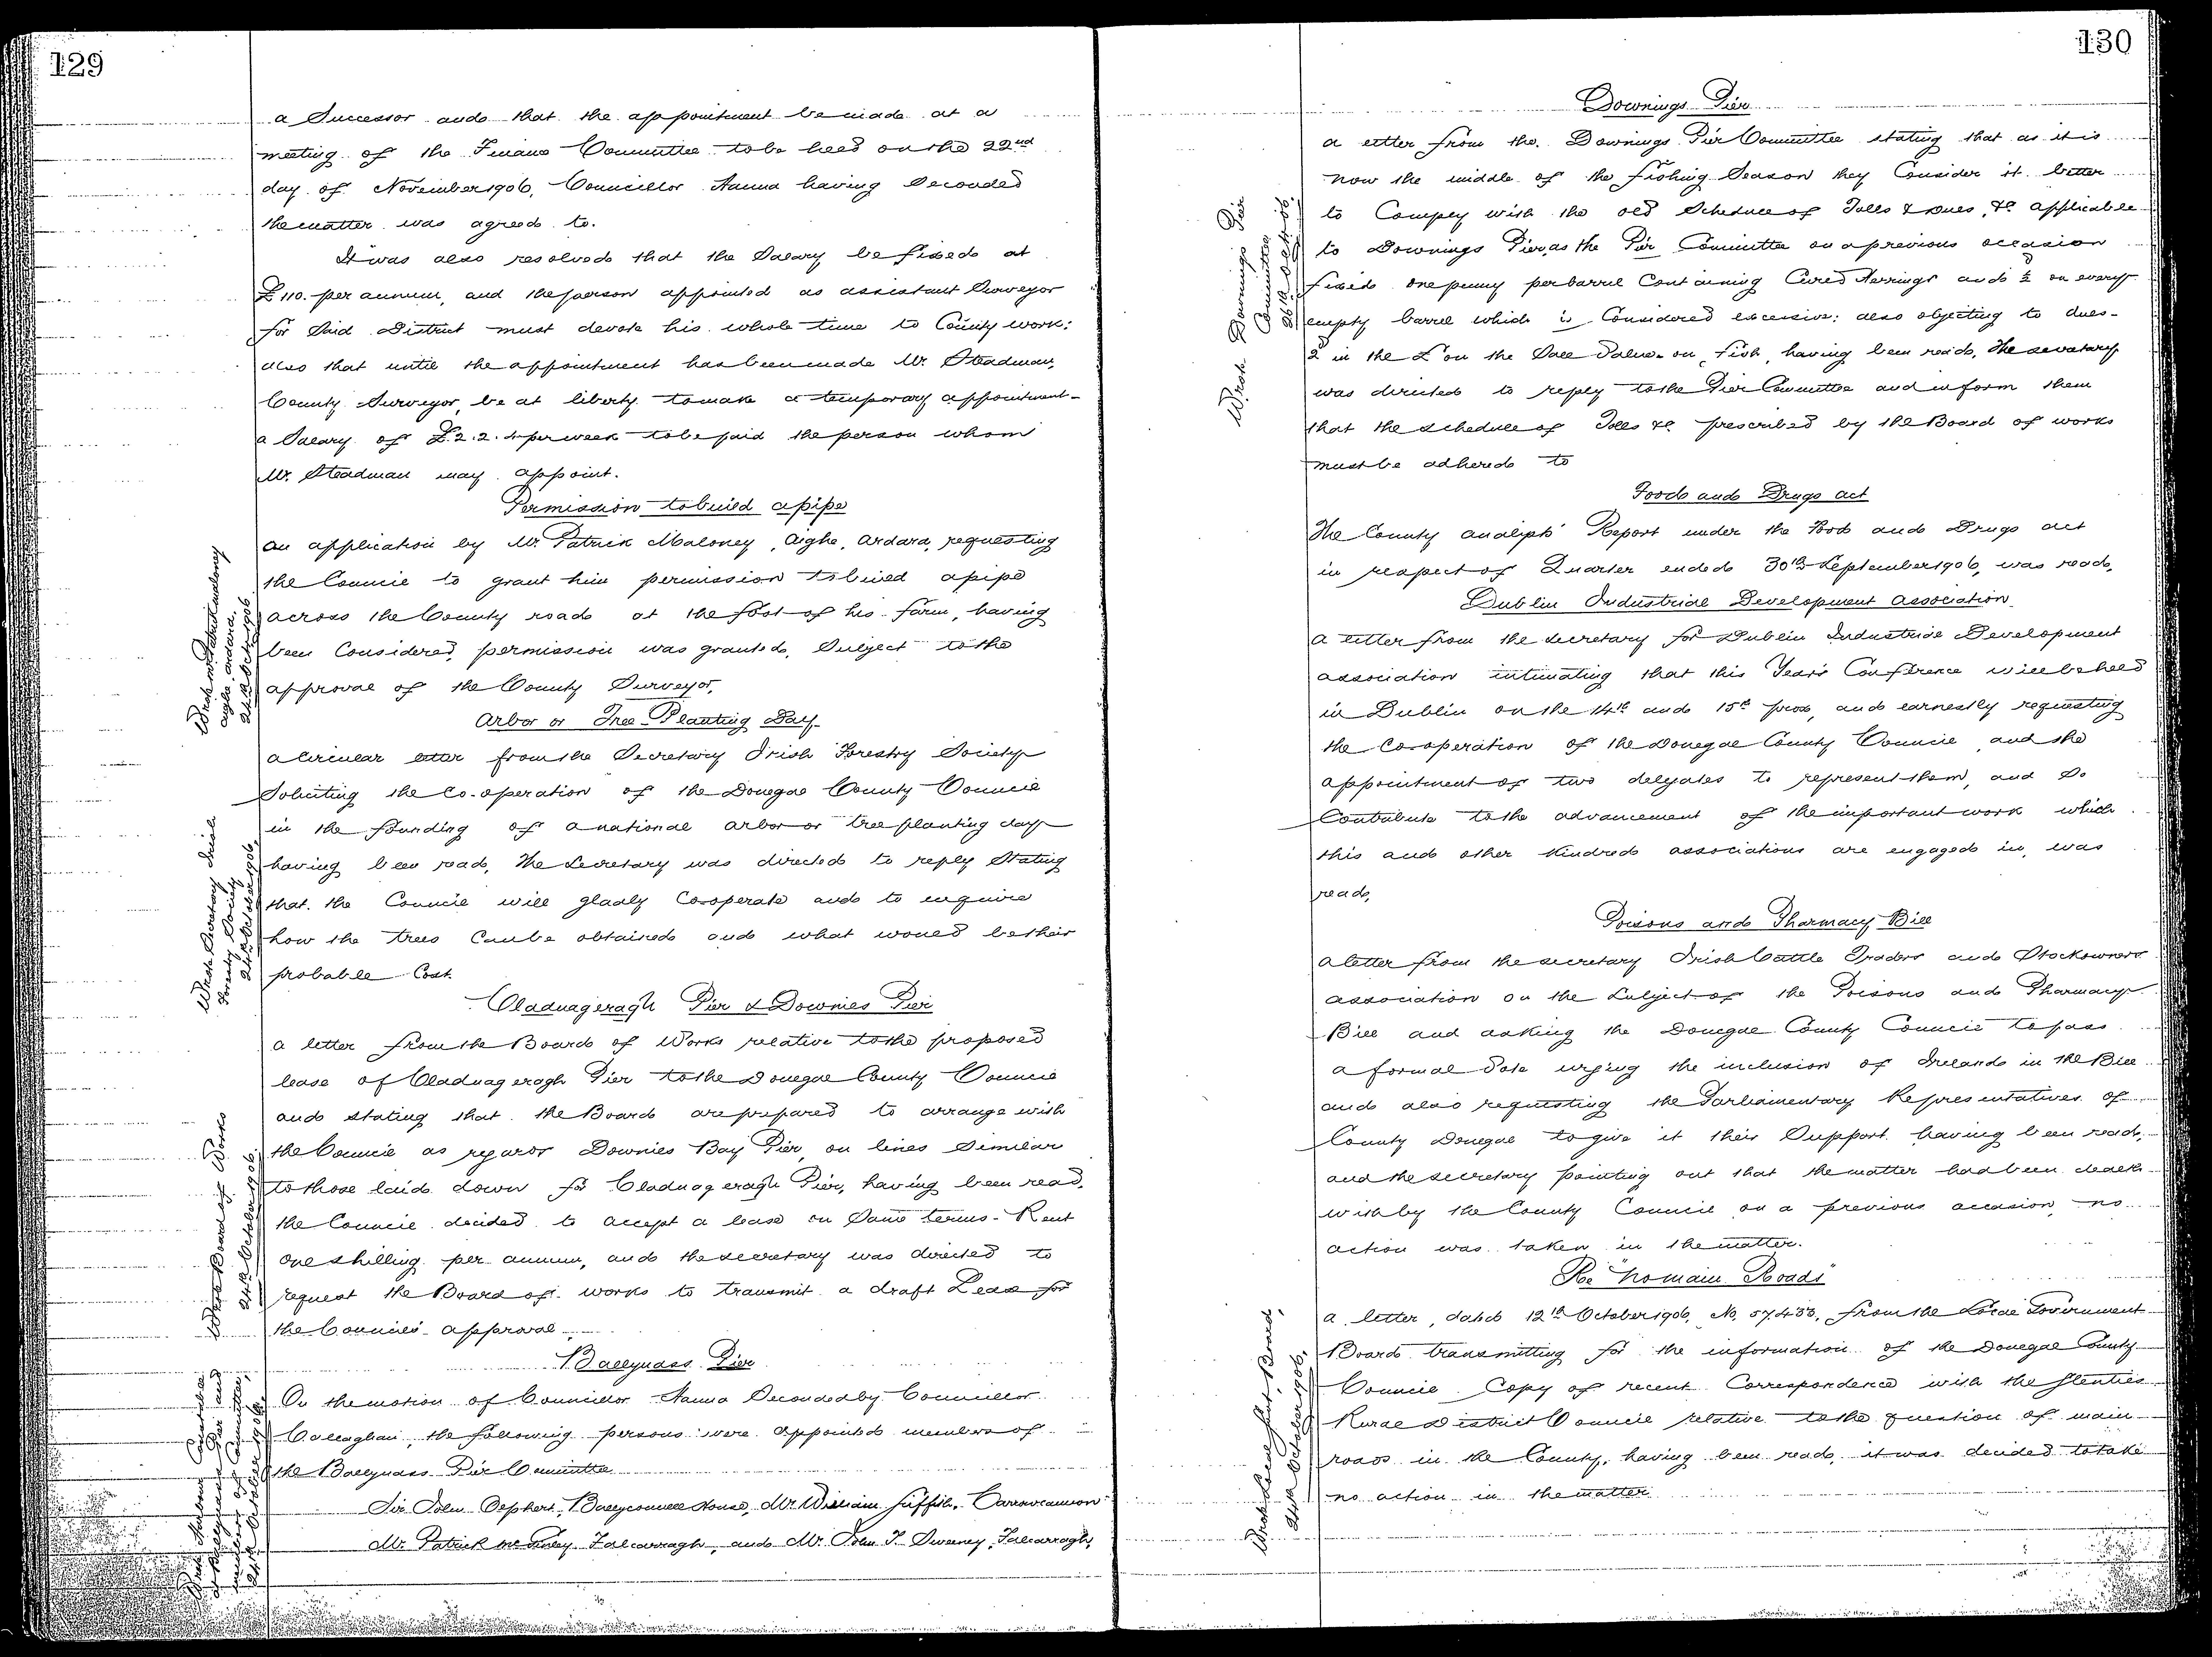 129
a Successor and that the appointment be made at a
meeting of the Finance Committee to be held on the 22nd
day of November 1906, Councillor Hanna having Seconded
the matter was agreed to.
It was also resolved that the Salary be fixed at
£110. per annum, and the person appointed as assistant Surveyor
for Said District must devote his whole time to County work:
also that until the appointment has been made Mr. Steadman,
County Surveyor, be at liberty to make a temporary appointment-
a Salary of £2.2.4 per week to be paid the person whom
Mr. Steadman may appoint.
Permission to build a pipe
an application by Mr. Patrick Maloney, Aighe, Ardara, requesting
the Council to grant him permission to build a pipe
across the County road at the foot of his farm, having
been Considered, permission was granted, Subject to the
approval of the County Surveyor,
Wrote Mr. Patrick Maloney
Aighe, Ardara,
24th Octr. 1906
Arbor or Tree-Planting Day
a Circular letter from the Secretary Irish Forestry Society
Soliciting the Co-operation of the Donegal County Council
in the founding of a national arbor or tree planting day
having been read, the Secretary was directed to reply Stating
that the Council will gladly Co-operate and to enquire
how the trees Can be obtained and what would be their
probable Cost.
Wrote Secretary Irish
Forestry Society
24th October 1906
Cladnageragh Pier & Downies Pier
a letter from the Board of Works relative to the proposed
lease of Cladnageragh Pier to the Donegal County Council
and stating that the Board are prepared to arrange with
the Council as regards Downies Bay Pier, on lines Similar
to those laid down for Cladnageragh Pier, having been read,
the Council decided to accept a lease on Same terms - Rent
one shilling per annum, and the secretary was directed to
request the Board of works to transmit a draft Lease for
the Council's approval.
Wrote Board of Works
24th October 1906.
Ballyness Pier
On the motion of Councillor Hanna Seconded by Councillor
Callaghan, the following persons were appointed members of
the Ballyness Pier Committee
Sir John Olphert, Ballyconnell House, Mr. William Griffith, Carrowcannon
Mr. Patrick McGinley Falcarragh, and Mr. John T. Sweeney, Falcarragh,
130
Downings Pier
a letter from the Downings Pier Committee stating that as it is
now the middle of the fishing Season they Consider it better
to Comply with the old Schedule of Tolls & Dues, &c applicable
to Downings Pier, as the Pier Committee on a previous occasion
fixed one penny per barrel Containing Cured Herrings and ½ on every
empty barrel which is Considered excessive: also objecting to dues-
2 in the £ on the Sale Value on fish, having been read, the secretary
was directed to reply to the Pier Committee and inform them
that the schedule of Tolls &c prescribed by the Board of works
must be adhered to
Wrote Downings Pier
Committee
Food and Drugs act
The County analysts' Report under the Food and Drugs act
in respect of Quarter ended 30th September 1906, was read,
Dublin Industrial Development Association
a letter from the secretary for Dublin Industrial Development
association intimating that this Year's Conference will be held
in Dublin on the 14th and 15th prox, and earnestly requesting
the co-operation of the Donegal County Council, and the
appointment of two delegates to represent them, and So
Contribute to the advancement of the important work which
this and other Kindred associations are engaged in, was
read,
Poisons and Pharmacy Bill
a letter from the secretary Irish Cattle Traders and Stockowners
association on the Subject of the Poisons and Pharmacy
Bill and asking the Donegal County Council to pass
a formal Vote urging the inclusion of Ireland in the Bill
and also requesting the Parliamentary Representatives of
County Donegal to give it their Support, having been read,
and the secretary pointing out that the matter had been dealt
with by the County Council on a previous occasion, no
action was taken in the matter.
Re "Romain Roads"
a letter, dated 12th October 1906, No. 57.433, from the Local Government
Board transmitting for the information of the Donegal County
Council Copy of recent Correspondence with the Glenties
Rural District Council relative to the question of main
roads in the County, having been read, it was decided to take
no action in the matter
Wrote Local Govt. Board,
24th October 1906.